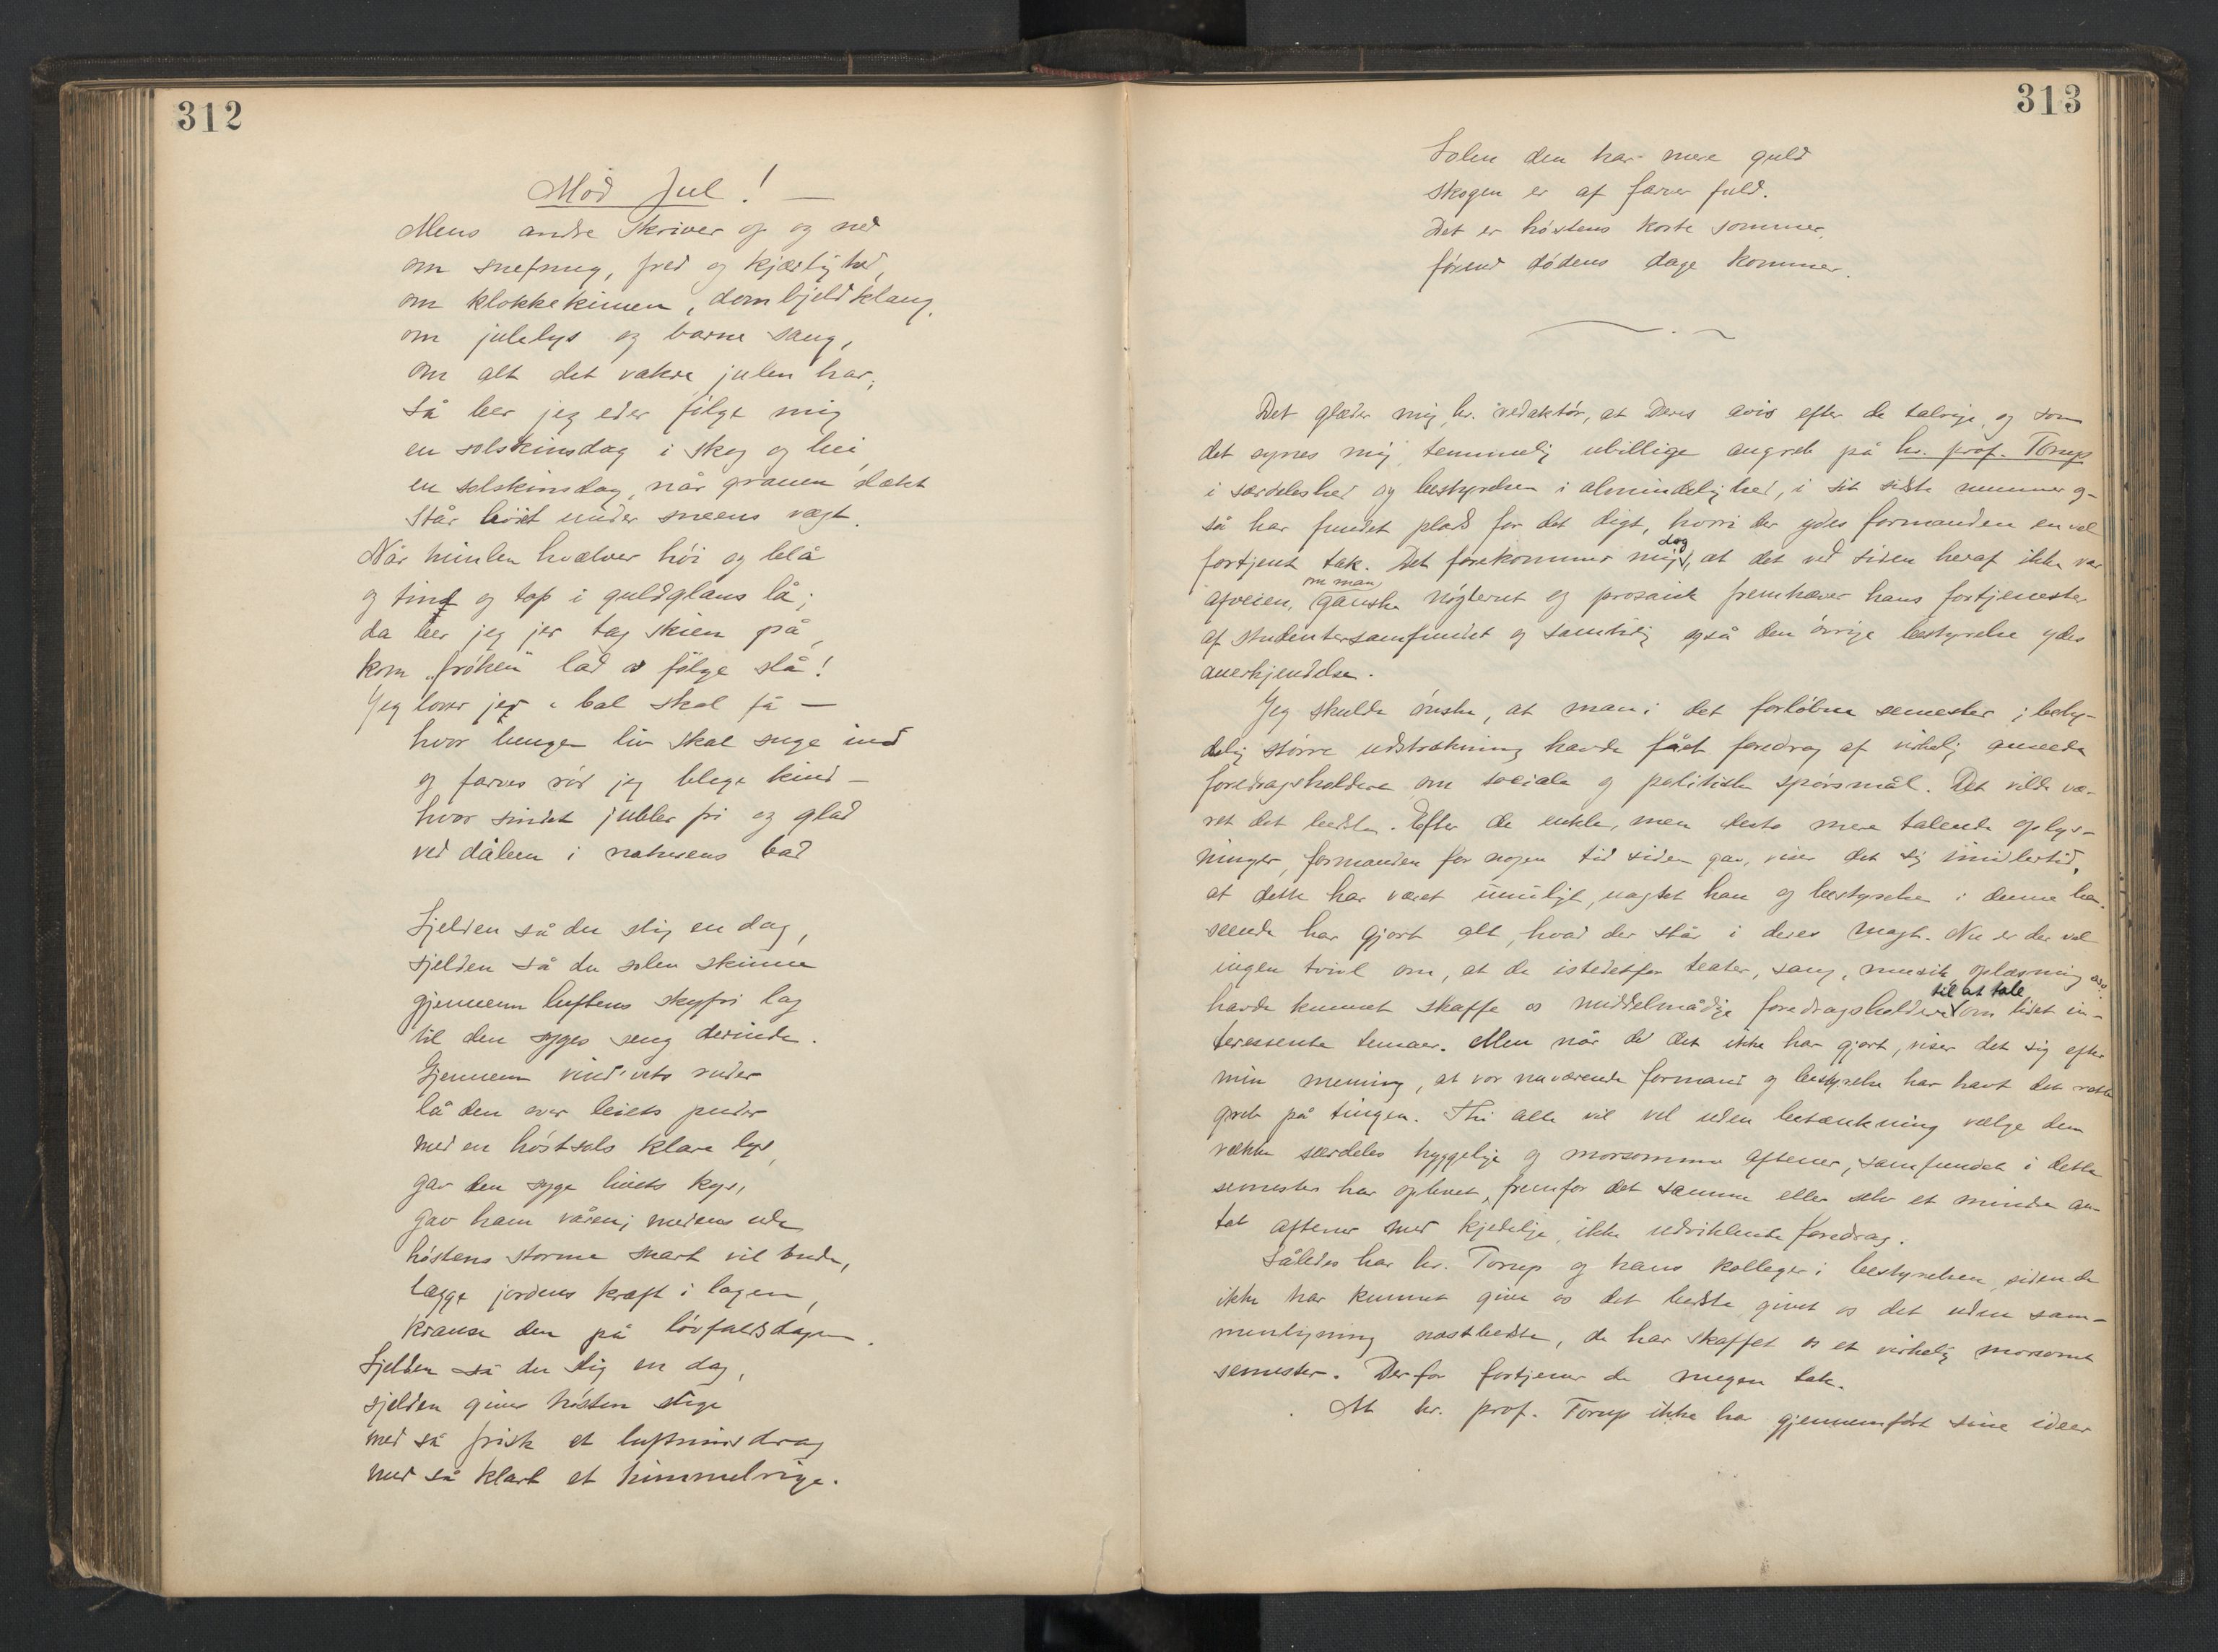 312
Mod Jul! —
Mens andre skriver op og ned
om snefnug, fred og kjærlighed,
om klokkekimen, dombjeldklang,
om julelys og barne sang,
om alt det vakre julen har,
så ber jeg eder følge mig
en solskinsdag i skog og hei,
en solskinsdag, når granen dækt
står bøiet under sneens vægt.
Når himlen hvælver høi og blå
og tind og top i guldglans lå;
da ber jeg jer tag skien på,
kom „frøken" lad os følge slå!
Jeg lover jer et bal skal få —
hvor lungen liv skal suge ind
og farves rød jeg blege kind —
hvor sindet jubler fri og glad
ved dåben i naturens bad
Sjelden så du slig en dag,
sjelden så du solen skinne
gjennem luftens skyfri lag
til den syges seng derinde.
Gjennem vinduets ruder
lå den over leiets puder
med en høstsols klare lys,
gav den syge livets kys,
gav ham våren; medens ude
høstens storme snart vil bude,
lægge jordens kraft i lagen,
kranse den på løvfaldsdagen.
Sjelden så du slig en dag,
sjelden giver høsten slige
med så frisk et luftninsdrag
med så klart et himmelrige.
313
Solen den har mere guld
skogen er af farver fuld.
Det er høstens korte sommer,
førend dødens dage kommer.
Det glæder mig, hr. redaktør, at Deres avis efter de talrige, og som
det synes mig temmelig ubillige angreb på hr. prof. Torup
i særdeleshed og bestyrelsen i almindelighed, i sit sidste nummer og-
så har fundet plads for det digt, hvori der ydes formanden en vel
fortjent tak. Det forekommer mig dog, at det ved siden heraf ikke var
afveien, om man ganske nøgternt og prosaisk fremhæver hans fortjenester
af studentersamfundet og samtidig også den øvrige bestyrelse ydes
anerkjendelse.
Jeg skulde ønske, at man i det forløbne semester i bety-
delig større udstrækning havde fået foredrag af virkelig ansede
foredragsholdere om sociale og politiske spørsmål. Det vilde væ-
ret det bedste. Efter de enkle, men desto mere talende oplys-
ninger, formanden for nogen tid siden gav, viser det sig imidlertid,
at dette har været umuligt, uagtet han og bestyrelse i denne hen-
seende har gjort alt, hvad der står i deres magt. Nu er der vel
ingen tvivl om, at de istedetfor teater, sang, musik, oplæsning osv.
havde kunnet skaffe os middelmådige foredragsholdere til at tale om lidet in-
teressente temaer. Men når de det ikke har gjort, viser det sig efter
min mening, at vor nuværende formand og bestyrelse har havt det rette
greb på tingen. Thi alle vil vel uden betænkning vælge den
række særdeles hyggelige og morsomme aftener, samfundet i dette
semester har oplevet, fremfor det samme eller selv et mindre an-
tal aftener med kjedelige, ikke udviklende foredrag.
Således har hr. Torup og hans kolleger i bestyrelsen, siden de
ikke har kunnet give os det bedste, givet os det uden sam-
menligning næstbedste, de har skaffet os et virkelig morsomt
semester. Derfor fortjener de megen tak.
At hr. prof. Torup ikke har gjennemført sine ideer